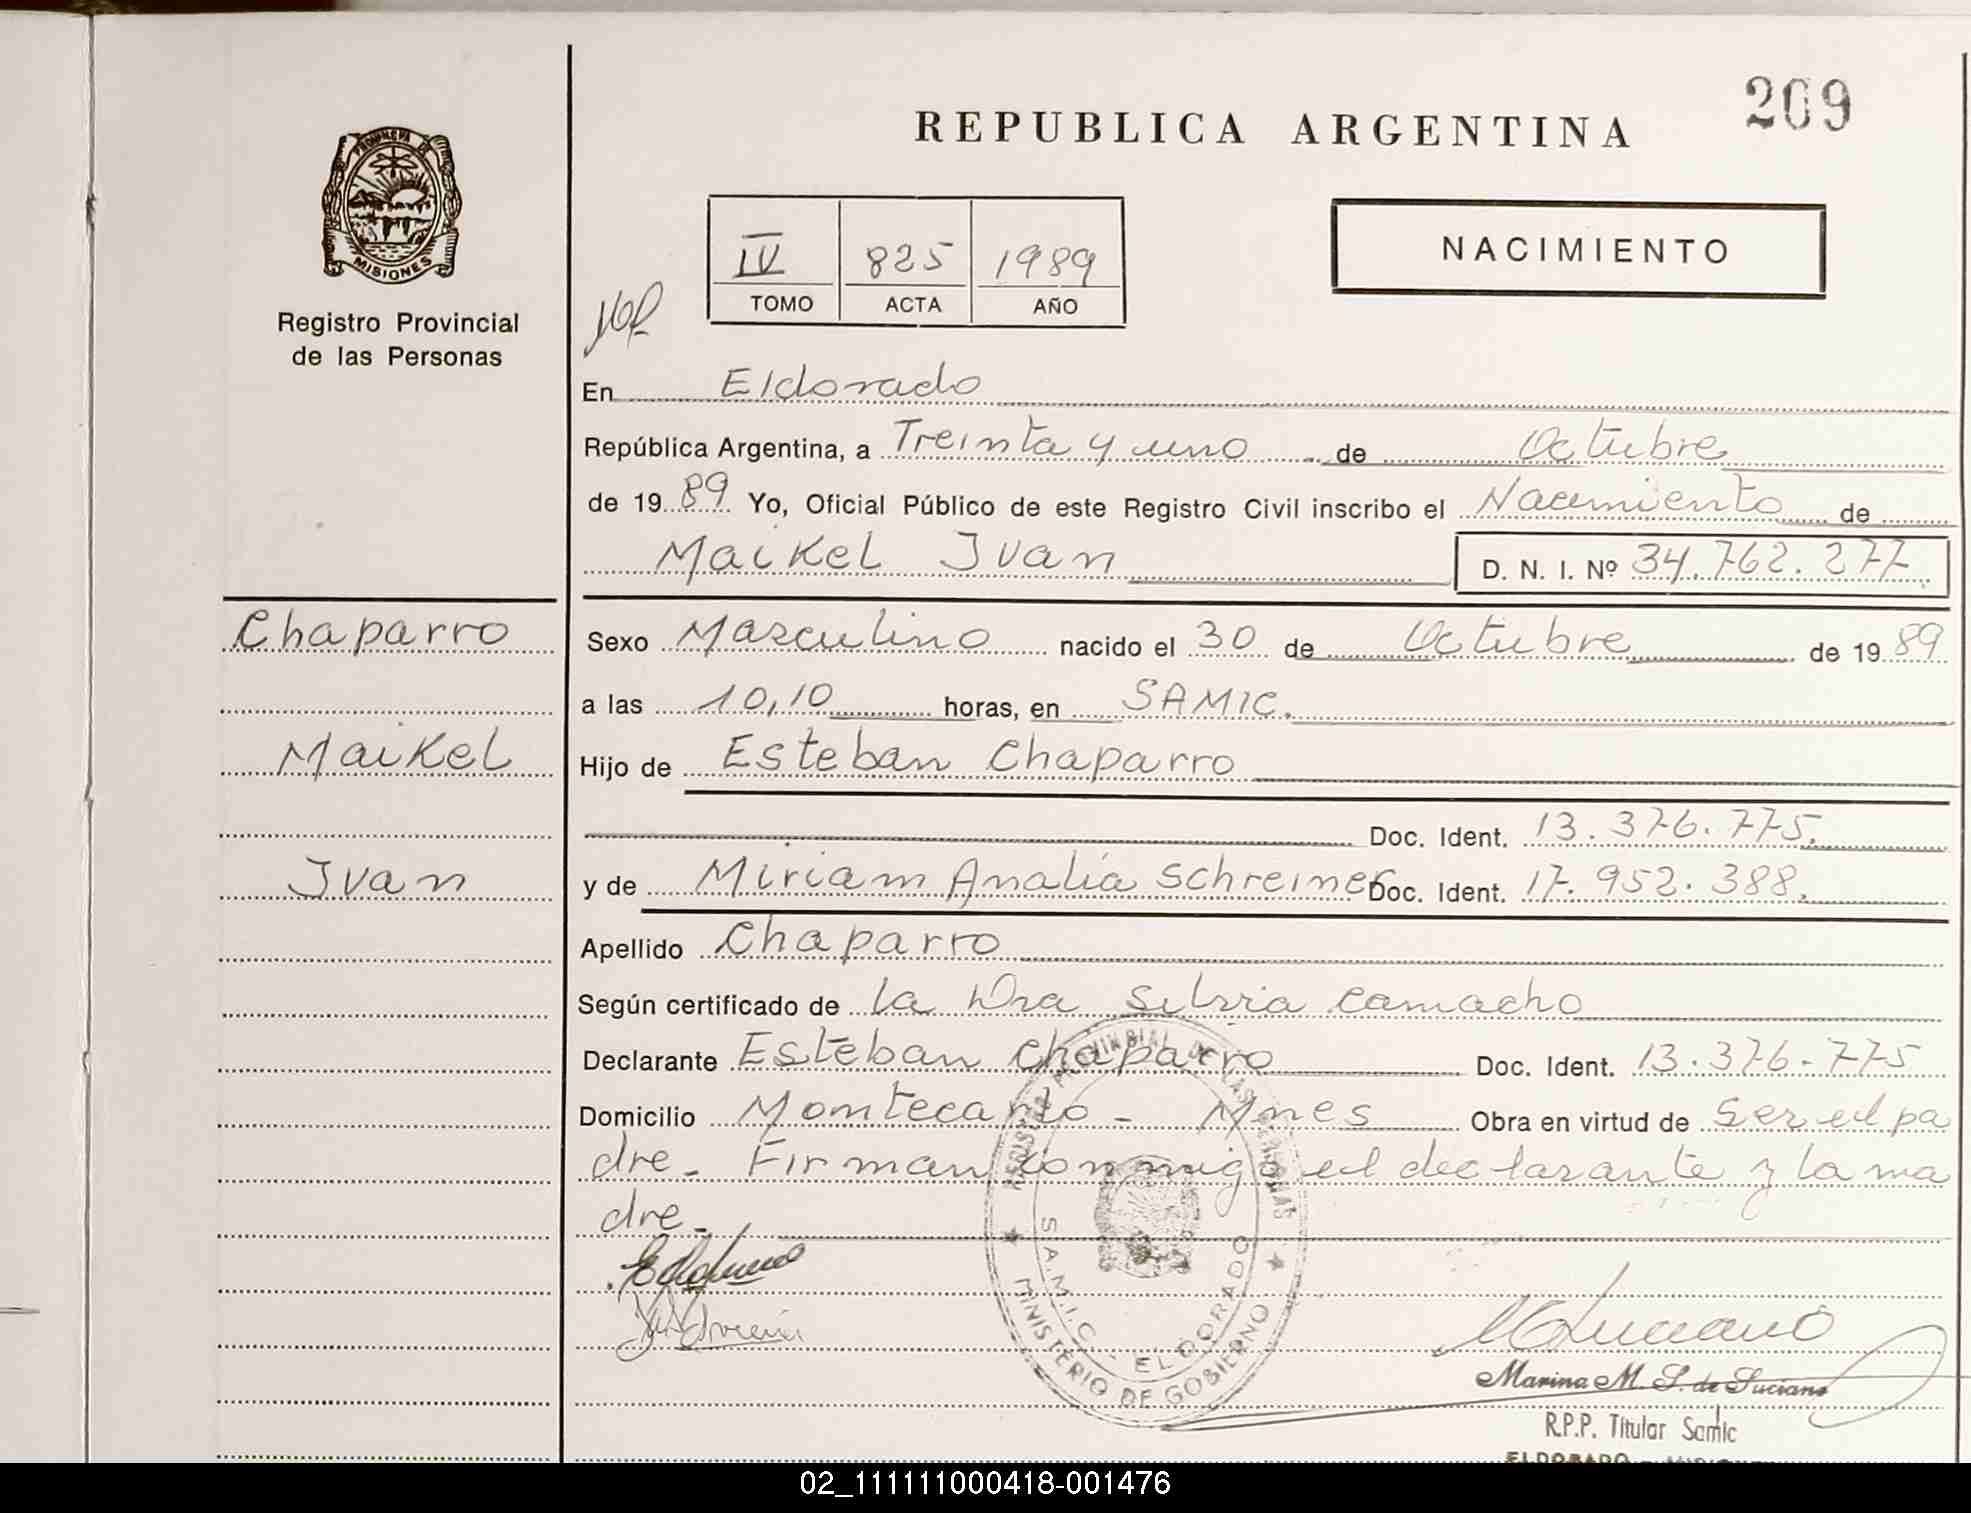 209
REPUBLICA ARGENTINA
PROVINCIA DE
MISIONES
Registro Provincial
de las Personas
IV 825 1989
TOMO ACTA AÑO
NACIMIENTO
En Eldorado
República Argentina, a Treinta y uno de Octubre
de 1989 Yo, Oficial Público de este Registro Civil inscribo el Nacimiento de
Maikel Ivan D. N. I. Nº 34.762.277
Chaparro
Maikel
Ivan
Sexo Masculino nacido el 30 de Octubre de 1989
a las 10,10 horas, en SAMIC.
Hijo de Esteban Chaparro
Doc. Ident. 13.376.775.
y de Miriam Analía Schreiner Doc. Ident. 17.952.388.
Apellido Chaparro
Según certificado de la Dra Silvia Camacho
Declarante Esteban Chaparro Doc. Ident. 13.376-775
Domicilio Montecarlo - Mnes Obra en virtud de Ser el pa
dre - Firman conmigo el declarante y la ma
dre -
REGISTRO PROVINCIAL DE LAS PERSONAS
S.A.M.I.C. - ELDORADO
MINISTERIO DE GOBIERNO
Marina M. S. de Luciano
R.P.P. Titular Samic
ELDORADO - MISIONES
02_111111000418-001476